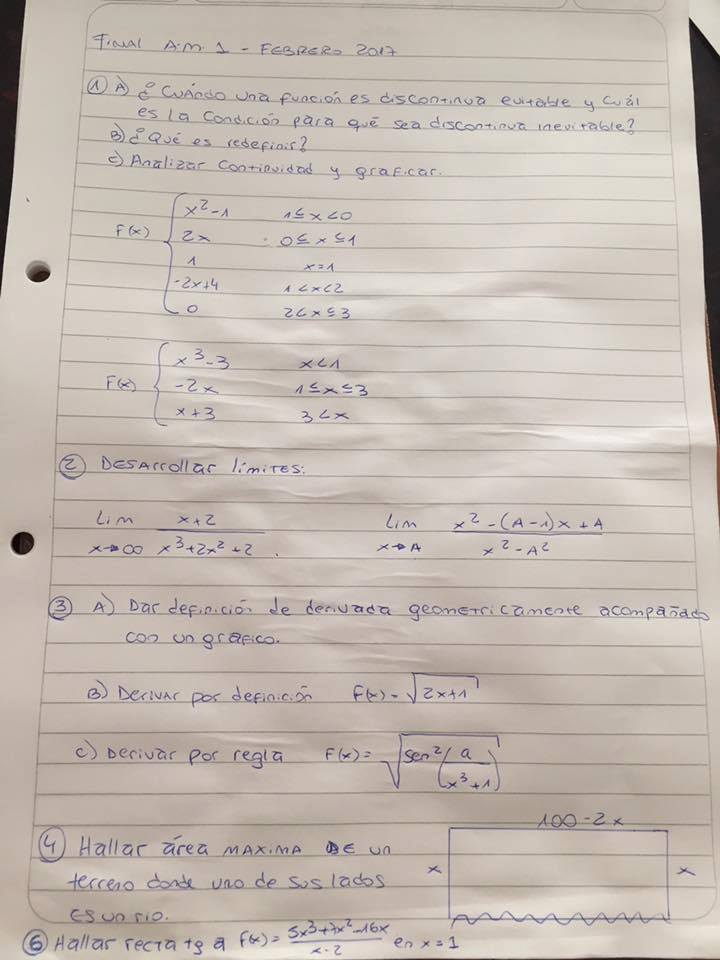 Final A.M. 1 - FEBRERO 2017
① A) ¿Cuándo una función es discontinua evitable y cuál
es la condición para qué sea discontinua inevitable?
B) ¿Qué es redefinir?
C) Analizar continuidad y graficar.
x²-1 1≤x<0
F(x) { 2x 0≤x≤1
1 x=1
-2x+4 1<x<2
0 2<x≤3
x³-3 x<1
F(x) { -2x 1≤x≤3
x+3 3<x
② DESArrollar límites:
Lim x→∞ (x+2)/(x³+2x²+2) . Lim x→A (x²-(A-1)x+A)/(x²-A²)
③ A) Dar definición de derivada geometricamente acompañado
con un gráfico.
B) Derivar por definición F(x)=√(2x+1)
C) Derivar por regla F(x)=√(sen²(a/(x³+1)))
100-2x
④ Hallar área MAXIMA DE un
x x
terreno donde uno de sus lados
es un rio.
⑥ Hallar recta tg a F(x)=(5x³+7x²-16x)/(x-2) en x=1